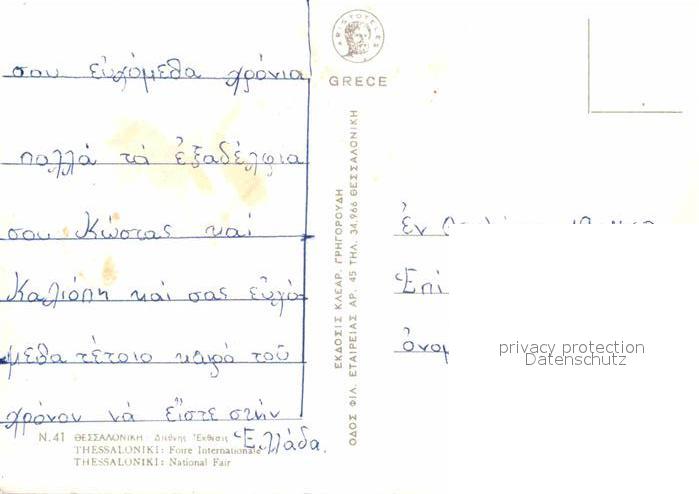 σου εὐχόμεθα χρόνια
πολλά τά ἐξαδέλφια
σου Κώστας καί
Καλιόπη καί σας εὐχό-
μεθα τέτοιο καιρό τοῦ
χρόνου νά εἶστε στήν
Ἑλλάδα.
N.41 ΘΕΣΣΑΛΟΝΙΚΗ: Διεθνής Ἔκθεσις
THESSALONIKI: Foire Internationale
THESSALONIKI: National Fair
ARISTOTELES
GRECE
ΕΚΔΟΣΙΣ ΚΛΕΑΡ. ΓΡΗΓΟΡΟΥΔΗ
ΟΔΟΣ ΦΙΛ. ΕΤΑΙΡΕΙΑΣ ΑΡ. 45 ΤΗΛ. 34.966 ΘΕΣΣΑΛΟΝΙΚΗ
ἐν
Ἐπί
ὀνομ
privacy protection
Datenschutz